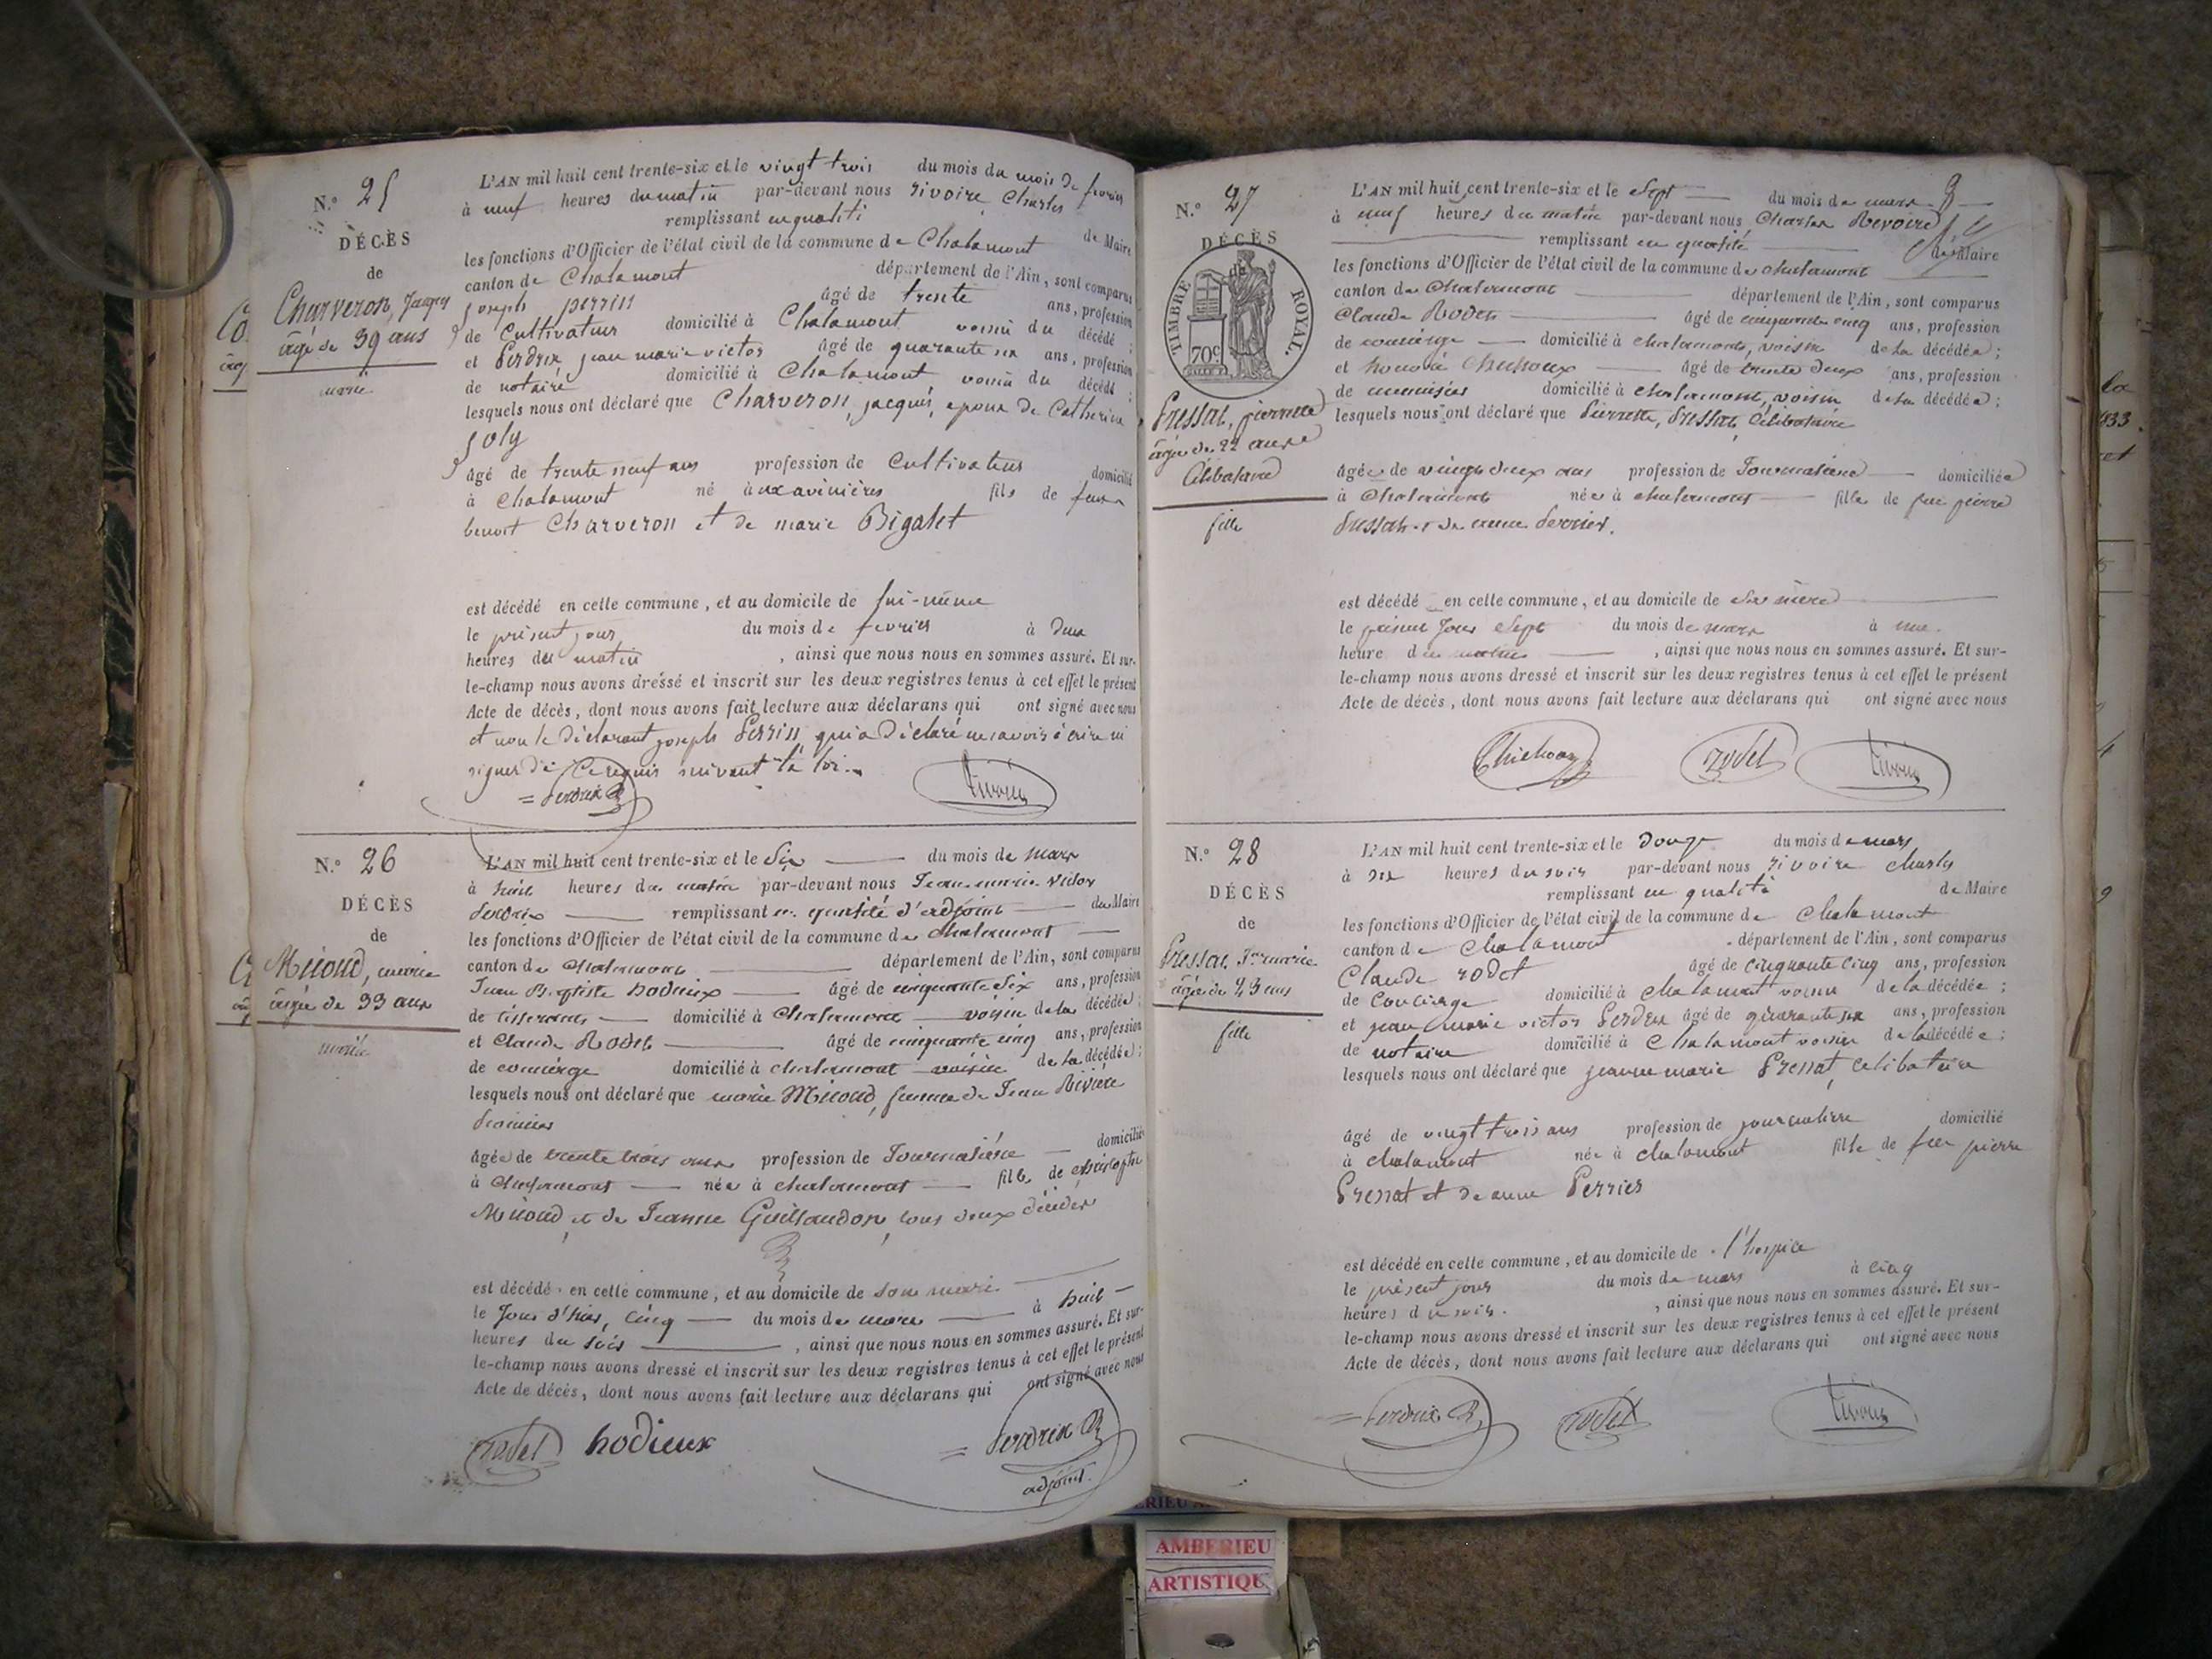 N.º 25
DÉCÈS
de
Charveron, Jacques
âgé de 39 ans
marié
L'AN mil huit cent trente-six et le vingt trois du mois du mois de fevrier
à neuf heures du matin par-devant nous rivoire Charles
remplissant en qualité de Maire
les fonctions d'Officier de l'état civil de la commune de Chalamont
canton de Chalamont département de l'Ain, sont comparus
joseph perrin âgé de trente ans, profession
de Cultivateur domicilié à Chalamont voisin du décédé ;
et Perdrix jean marie victor âgé de quarante six ans, profession
de notaire domicilié à Chalamont, voisin du décédé ;
lesquels nous ont déclaré que Charveron, jacques, epoux de Catherine
joly
âgé de trente neuf ans profession de Cultivateur domicilié
à Chalamont né à fils de feu
benoit Charveron et de marie Bigalet
est décédé en cette commune, et au domicile de lui-même
le présent jour du mois de fevrier à deux
heures du matin , ainsi que nous nous en sommes assuré. Et sur-
le-champ nous avons dressé et inscrit sur les deux registres tenus à cet effet le présent
Acte de décès, dont nous avons fait lecture aux déclarans qui ont signé avec nous
et non le déclarant joseph Perrin qui a déclaré ne savoir écrire ni
signer de ce requis suivant la loi.
Perdrix rivoire
N.º 26
DÉCÈS
de
Micoud, marie
âgée de 33 ans
mariée
L'AN mil huit cent trente-six et le Six du mois de mars
à huit heures du matin par-devant nous Jean-marie Victor
Perdrix remplissant en qualité d'adjoint du Maire
les fonctions d'Officier de l'état civil de la commune de Chalamont
canton de Chalamont département de l'Ain, sont comparus
Jean Baptiste hodieux âgé de cinquante Six ans, profession
de tisserand domicilié à Chalamont voisin de la décédée ;
et Claude Rodet âgé de cinquante cinq ans, profession
de concierge domicilié à chalamont voisin de la décédée ;
lesquels nous ont déclaré que marie Micoud, femme de Jean Rivière
âgée de trente trois ans profession de Journalière domiciliée
à Chalamont née à chalamont fille de christophe
Micoud, et de Jeanne Guillaudon, tous deux décédés
est décédé en cette commune, et au domicile de son mari
le Jour d'hier, cinq du mois de mars à huit
heures du soir , ainsi que nous nous en sommes assuré. Et sur-
le-champ nous avons dressé et inscrit sur les deux registres tenus à cet effet le présent
Acte de décès, dont nous avons fait lecture aux déclarans qui ont signé avec nous
rodet hodieux Perdrix
adjoint.
N.º 27
DÉCÈS
TIMBRE ROYAL.
70c
Pressat, pierrette
âgée de 22 ans
Célibataire
fille
L'AN mil huit cent trente-six et le Sept du mois de mars
à neuf heures du matin par-devant nous Charles Revoire
remplissant en qualité de Maire
les fonctions d'Officier de l'état civil de la commune de chalamont
canton de Chalamont département de l'Ain, sont comparus
Claude Rodet âgé de cinquante cinq ans, profession
de concierge domicilié à chalamont, voisin de la décédée ;
et honoré âgé de trente deux ans, profession
de menuisier domicilié à chalamont, voisin de la décédée ;
lesquels nous ont déclaré que Pierrette, Pressat, Célibataire
âgée de vingt deux ans profession de Journalière domiciliée
à Chalamont née à chalamont fille de feu pierre
Pressat et de anne Perrier.
est décédé en cette commune, et au domicile de sa mère
le présent Jour Sept du mois de mars à une
heure du matin , ainsi que nous nous en sommes assuré. Et sur-
le-champ nous avons dressé et inscrit sur les deux registres tenus à cet effet le présent
Acte de décès, dont nous avons fait lecture aux déclarans qui ont signé avec nous
rodet rivoire
N.º 28
DÉCÈS
de
Pressat, Jne marie
âgée de 23 ans
fille
L'AN mil huit cent trente-six et le Douze du mois de mars
à six heures du soir par-devant nous rivoire charles
remplissant en qualité de Maire
les fonctions d'Officier de l'état civil de la commune de Chalamont
canton de Chalamont département de l'Ain, sont comparus
Claude rodet âgé de cinquante cinq ans, profession
de Concierge domicilié à chalamont voisin de la décédée ;
et jean marie victor Perdrix âgé de quarante six ans, profession
de notaire domicilié à Chalamont voisin de la décédée ;
lesquels nous ont déclaré que jeanne marie Pressat, celibataire
âgé de vingt trois ans profession de journalière domicilié
à chalamont née à chalamont fille de feu pierre
Pressat et de anne Perrier
est décédé en cette commune, et au domicile de l'hospice
le présent jour du mois de mars à cinq
heures du soir. , ainsi que nous nous en sommes assuré. Et sur-
le-champ nous avons dressé et inscrit sur les deux registres tenus à cet effet le présent
Acte de décès, dont nous avons fait lecture aux déclarans qui ont signé avec nous
Perdrix rodet rivoire
AMBERIEU
ARTISTIQUE